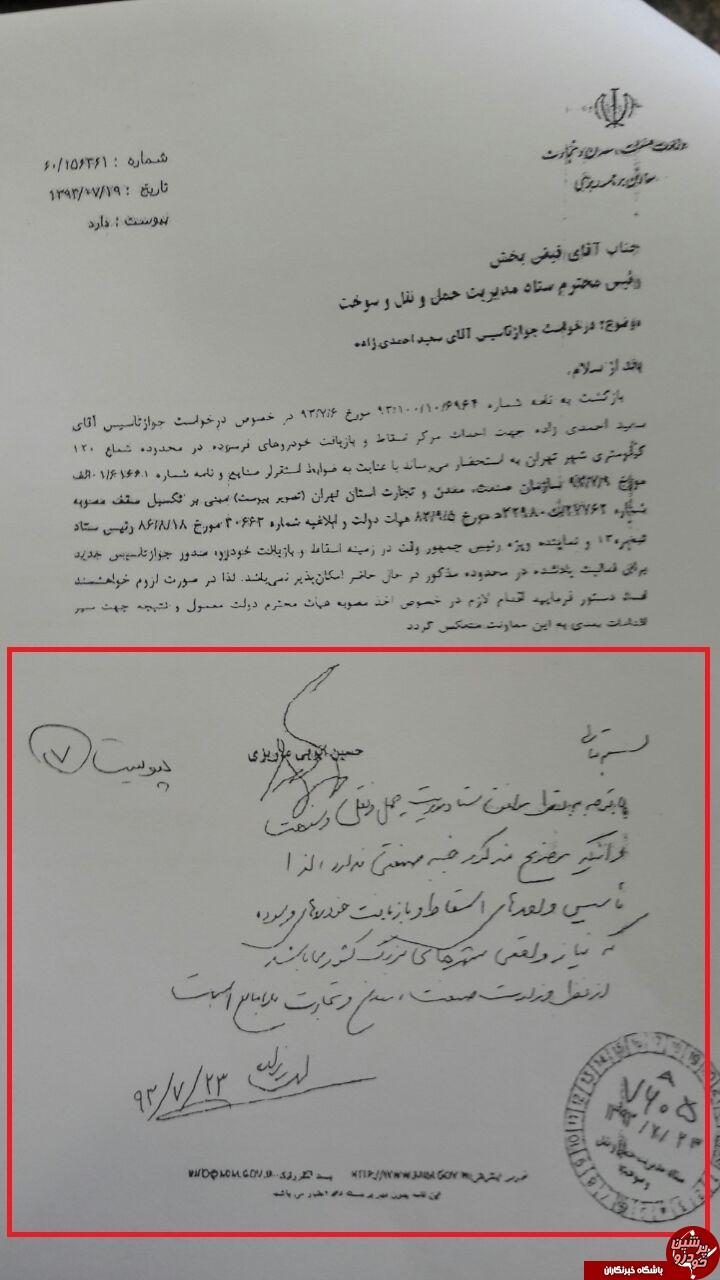 وزارت صنعت، معدن و تجارت
معاونت برنامه‌ریزی
شماره : ۶۰/۱۵۶۳۶۱
تاریخ : ۱۳۹۳/۰۷/۱۹
پیوست : دارد
جناب آقای فیض بخش
رئیس محترم ستاد مدیریت حمل و نقل و سوخت
موضوع: درخواست جواز تاسیس آقای سعید احمدی زاده
بعد از سلام،
بازگشت به نامه شماره ۹۳/۱۰۰/۱۰/۶۹۶۴ مورخ ۹۳/۷/۶ در خصوص درخواست جواز تاسیس آقای
سعید احمدی زاده جهت احداث مرکز اسقاط و بازیافت خودروهای فرسوده در محدوده شعاع ۱۲۰
کیلومتری شهر تهران به استحضار می‌رساند با عنایت به ضوابط استقرار صنایع و نامه شماره
مورخ ۹۳/۷/۹ سازمان صنعت، معدن و تجارت استان تهران (تصویر پیوست) مبنی بر تکمیل سقف مصوبه
شماره مورخ ۸۲/۹/۵ هیات دولت و ابلاغیه شماره ۴۰۶۶۲ مورخ ۸۶/۸/۱۸ رئیس ستاد
تبصره ۱۳ و نماینده ویژه رئیس جمهور وقت در زمینه اسقاط و بازیافت خودرو، صدور جواز تاسیس جدید
برای فعالیت یادشده در محدوده مذکور در حال حاضر امکان‌پذیر نمی‌باشد. لذا در صورت لزوم خواهشمند
است دستور فرمایید اقدام لازم در خصوص اخذ مصوبه هیات محترم دولت معمول و نتیجه جهت سیر
اقدامات بعدی به این معاونت منعکس گردد
حسین ابویی مهریزی
پیوست ۷
با توجه به موافقت ستاد مدیریت حمل و نقل و سوخت
و اینکه موضوع مذکور جنبه صنعتی ندارد لذا
تأسیس واحدهای اسقاط و بازیافت خودروهای فرسوده
که نیاز واقعی شهرهای بزرگ کشور می‌باشد
از نظر وزارت صنعت، معدن و تجارت بلامانع است
۹۳/۷/۲۳
۷۶۰۵
۱۳۹۳/۷/۲۳
ستاد مدیریت حمل و نقل
و سوخت
این نامه بدون مهر برجسته فاقد اعتبار می باشد
پرشین خودرو
باشگاه خبرنگاران